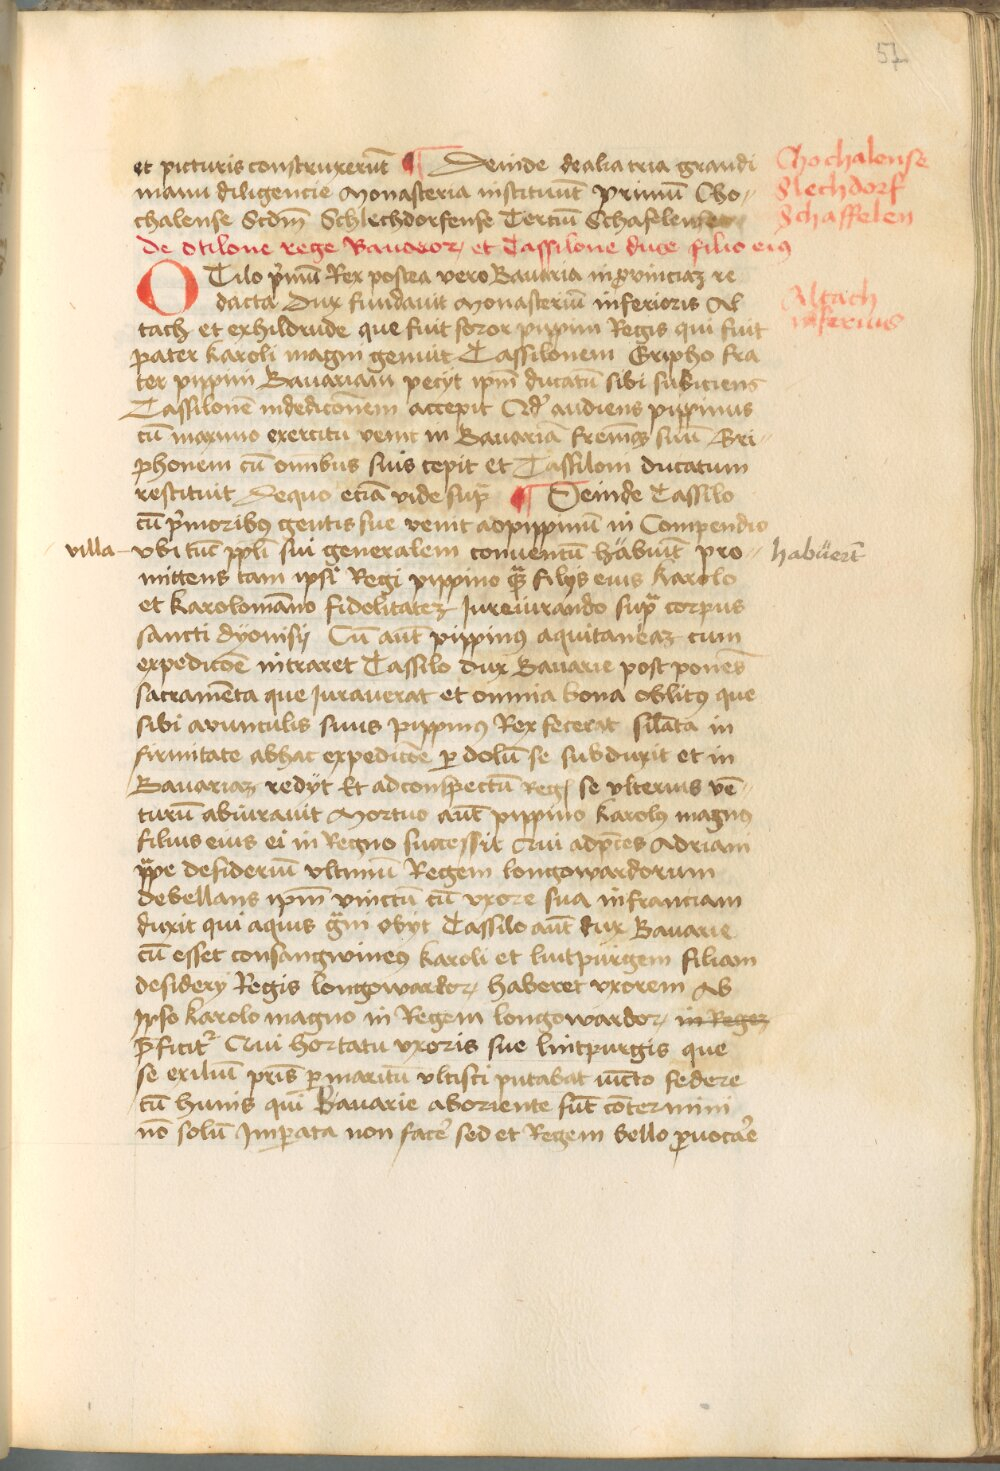 57
et picturis construxerūt ¶ Deinde de alia tria grandi
manu diligencie Monasteria instituūt Primū Cho-
chalense Scdm̄ Schlechdorfense Terciū Schafelense
Chochalense
Slechdorf
Schaffelen
de Otilone rege Bauaror, et Tassilone duce filio eiꝰ
OTilo p̄mū Rex postea vero Bauaria in prouinciaz re
dacta Dux fundauit Monasteriū inferioris Al
Altach
inferius
tach et exhildrude que fuit soror pippini Regis qui fuit
pater Karoli magni genuit Tassilonem Gripho fra
ter pippini Bauariam petÿt ipm̄ ducatū sibi subiciens
Tassilonē in dedicōnem accepit Qd' audiens pippinus
cū maximo exercitu venit in Bauariā fremq̄ suū Gri-
phonem cū omībus suis cepit et Tassiloni ducatum
restituit De quo eciā vide sup̄ ¶ Deinde Tassilo
cū p̄moribꝰ gentis sue venit ad pippinū in Compendio
villa - vbi tūc ppl̄i sui generalem conuentū häbuit pro-
habüert̄
mittens tam ipsi Regi pippino q̄ filÿs eius Karolo
et Karolomāno fidelitatez Iureiurando sup̄ corpus
sancti dÿonisÿ Cū aūt pippinꝰ aquitaneaz cum
expedicōe intraret Tassilo dux Bauarie post ponēs
sacramēta que Iurauerat et omnia bona oblitꝰ que
sibi avunculis suus pippinꝰ Rex fecerat sil̄ata in
firmitate ab hac expedicōe p dolū se subduxit et in
Bauariaz redÿt Et ad conspectū Reḡ se vlterius vē-
turū abiurauit Mortuo aūt pippino Karolꝰ magnꝰ
filius eius ei in Regno successit Qui ad p̄ces Adriani
p̄pe desideriū vltimū Regem longowardorum
debellans ipm̄ vinctū cū vxore sua in franciam
duxit qui aquis gͣni obÿt Tassilo aūt dux Bauarie
cū esset consangwineꝰ Karoli et liutpurgem filiam
desiderÿ Regis longowardor, haberet vxorem Ab
ipso Karolo magno in Regem longowardor, in Regez
p̄ficitr̄ Qui hortatu vxoris sue liutpurgis que
se exiliū pr̄is p maritū vltisci putabat iūcto federe
cū hunis qui Bauarie ab oriente sūt cōtermini
nō solū Imperata non facer̄ sed et Regem bello ꝓuocar̄e